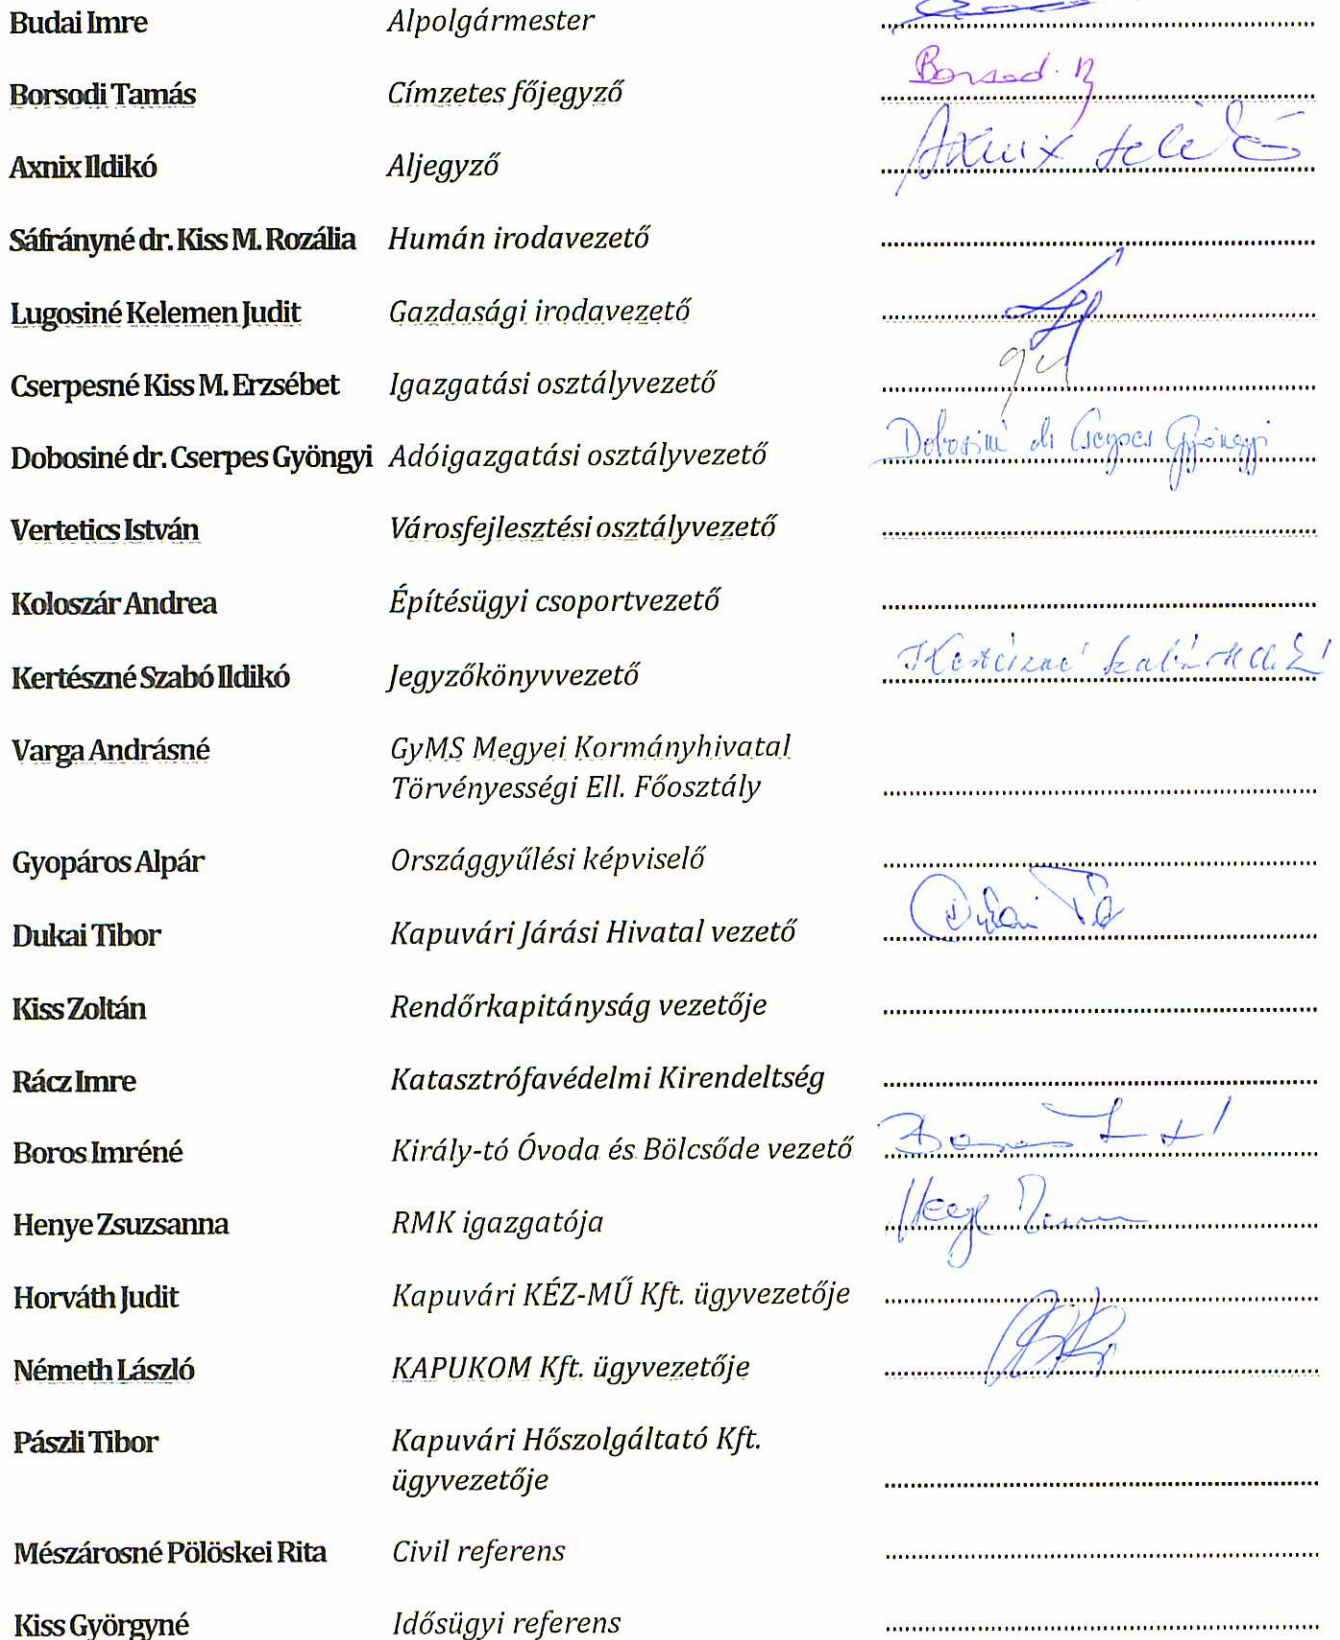 Budai Imre Alpolgármester
Borsodi Tamás Címzetes főjegyző
Axnix Ildikó Aljegyző Axnix
Sáfrányné dr. Kiss M. Rozália Humán irodavezető
Lugosiné Kelemen Judit Gazdasági irodavezető
Cserpesné Kiss M. Erzsébet Igazgatási osztályvezető
Dobosiné dr. Cserpes Gyöngyi Adóigazgatási osztályvezető Dobosiné dr Cserpes Gyöngyi
Vertetics István Városfejlesztési osztályvezető
Koloszár Andrea Építésügyi csoportvezető
Kertészné Szabó Ildikó Jegyzőkönyvvezető
Varga Andrásné GyMS Megyei Kormányhivatal
Törvényességi Ell. Főosztály
Gyopáros Alpár Országgyűlési képviselő
Dukai Tibor Kapuvári Járási Hivatal vezető
Kiss Zoltán Rendőrkapitányság vezetője
Rácz Imre Katasztrófavédelmi Kirendeltség
Boros Imréné Király-tó Óvoda és Bölcsőde vezető
Henye Zsuzsanna RMK igazgatója
Horváth Judit Kapuvári KÉZ-MŰ Kft. ügyvezetője
Németh László KAPUKOM Kft. ügyvezetője
Pászli Tibor Kapuvári Hőszolgáltató Kft.
ügyvezetője
Mészárosné Pölöskei Rita Civil referens
Kiss Györgyné Idősügyi referens